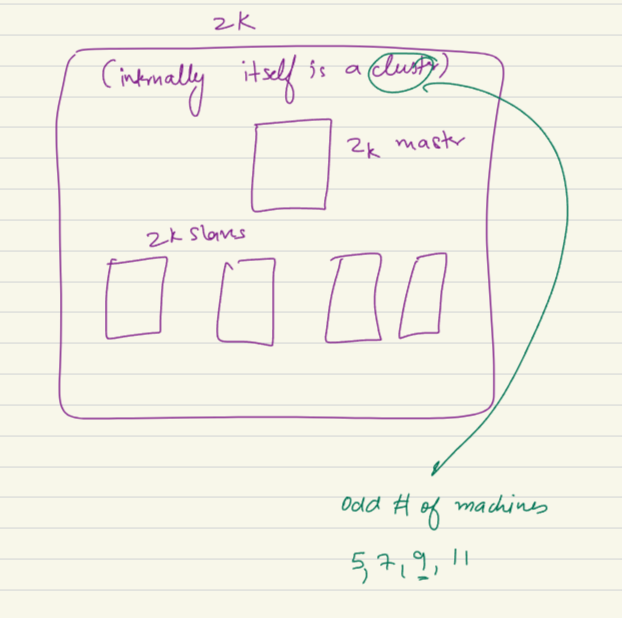 ZK
(internally itself is a cluster)
Zk master
Zk Slaves
Odd # of machines
5, 7, 9, 11